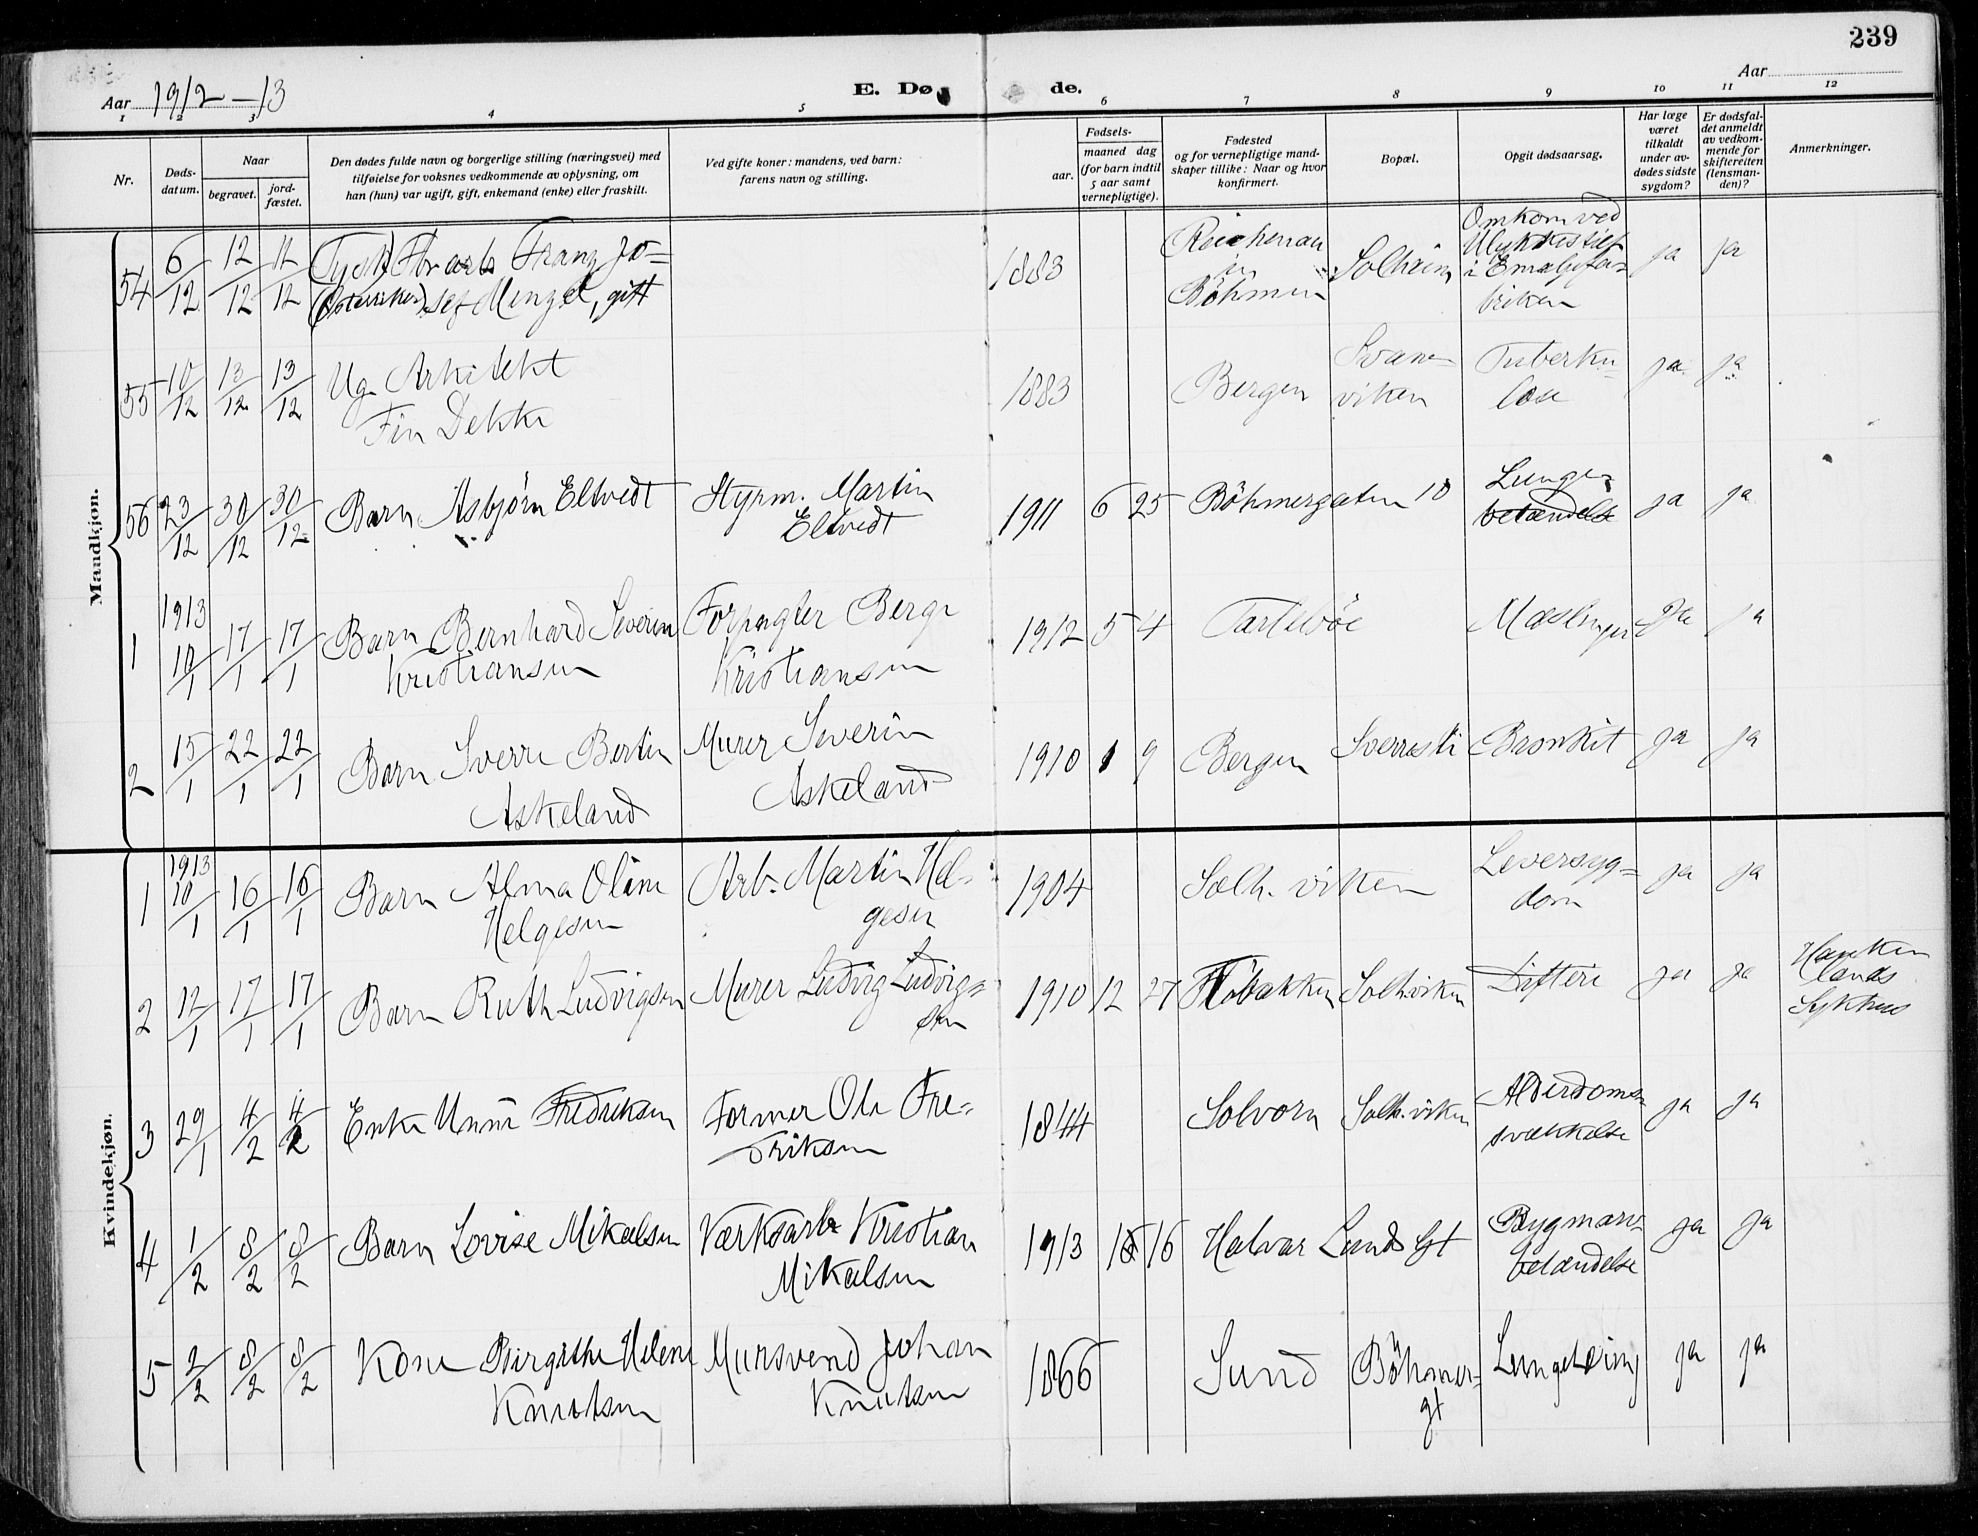 239
Aar 1912-13
E. Dø de.
Aar
1 2 3 4 5 6 7 8 9 10 11 12
Nr.
Døds-
datum.
Naar
begravet.
jord-
fæstet.
Den dødes fulde navn og borgerlige stilling (næringsvei) med
tilføielse for voksnes vedkommende av oplysning, om
han (hun) var ugift, gift, enkemand (enke) eller fraskilt.
Ved gifte koner: mandens, ved barn:
farens navn og stilling.
Fødsels-
aar.
maaned dag
(for barn indtil
5 aar samt
vernepligtige).
Fødested
og for vernepligtige mand-
skaper tillike: Naar og hvor
konfirmert.
Bopæl.
Opgit dødsaarsag.
Har læge
været
tilkaldt
under av-
dødes sidste
sygdom?
Er dødsfal-
det anmeldt
av vedkom-
mende for
skifteretten
(lensman-
den)?
Anmerkninger.
Mandkjøn.
54 6/12 12/12 12/12 Franz Jo-
sef Mengel, gift
1883 Reichenau
in
Böhmen
Solheim
Omkom ved
Ulykkestilf
i Emaljefa-
briken
ja ja
55 10/12 13/12 13/12 Ug. Arkitekt
Fin Dekke
1883 Bergen
Svane-
viken
Tuberku-
lose
ja ja
56 23/12 30/12 30/12 Barn Asbjørn Eltvedt
Styrm. Martin
Eltvedt
1911 6 25 Böhmergaten 10
Lunge-
betændelse
ja ja
1913
1 10/1 17/1 17/1 Barn Bernhard Severin
Kristiansen
Forpagter Berge
Kristiansen
1912 5 4 Tartlebøe Mæslinger ja ja
2 15/1 22/1 22/1 Barn Sverre Bertin
Askeland
Murer Severin
Askeland
1910 1 9 Bergen Sverresti Bronkit ja ja
Kvindekjøn.
1913
1 10/1 16/1 16/1 Barn Alma Oline
Helgesen
Arb. Martin Hel-
gesen
1904 Solh. viken
Leversyg-
dom
ja ja
2 12/1 17/1 17/1 Barn Ruth Ludvigsen
Murer Ludvig Ludvig-
sen
1910 12 27 Solhviken Difteri ja ja
Haukelands
Sykhus
3 29/1 4/2 4/2 Enke Unni Fredriksen
Former Ole Fre-
driksen
1844 Solvorn Solh. viken
Alderdoms-
svækkelse
ja ja
4 1/2 8/2 8/2 Barn Lovise Mikalsen
Værksarb Kristian
Mikalsen
1913 1 16 Halvar Lunds gt
Rygmarvs
betændelse
ja ja
5 2/2 8/2 8/2 Kone Birgithe Helene
Knutsen
Mursvend Johan
Knutsen
1866 Sund
Böhmer-
gt
Lungetæring
ja ja